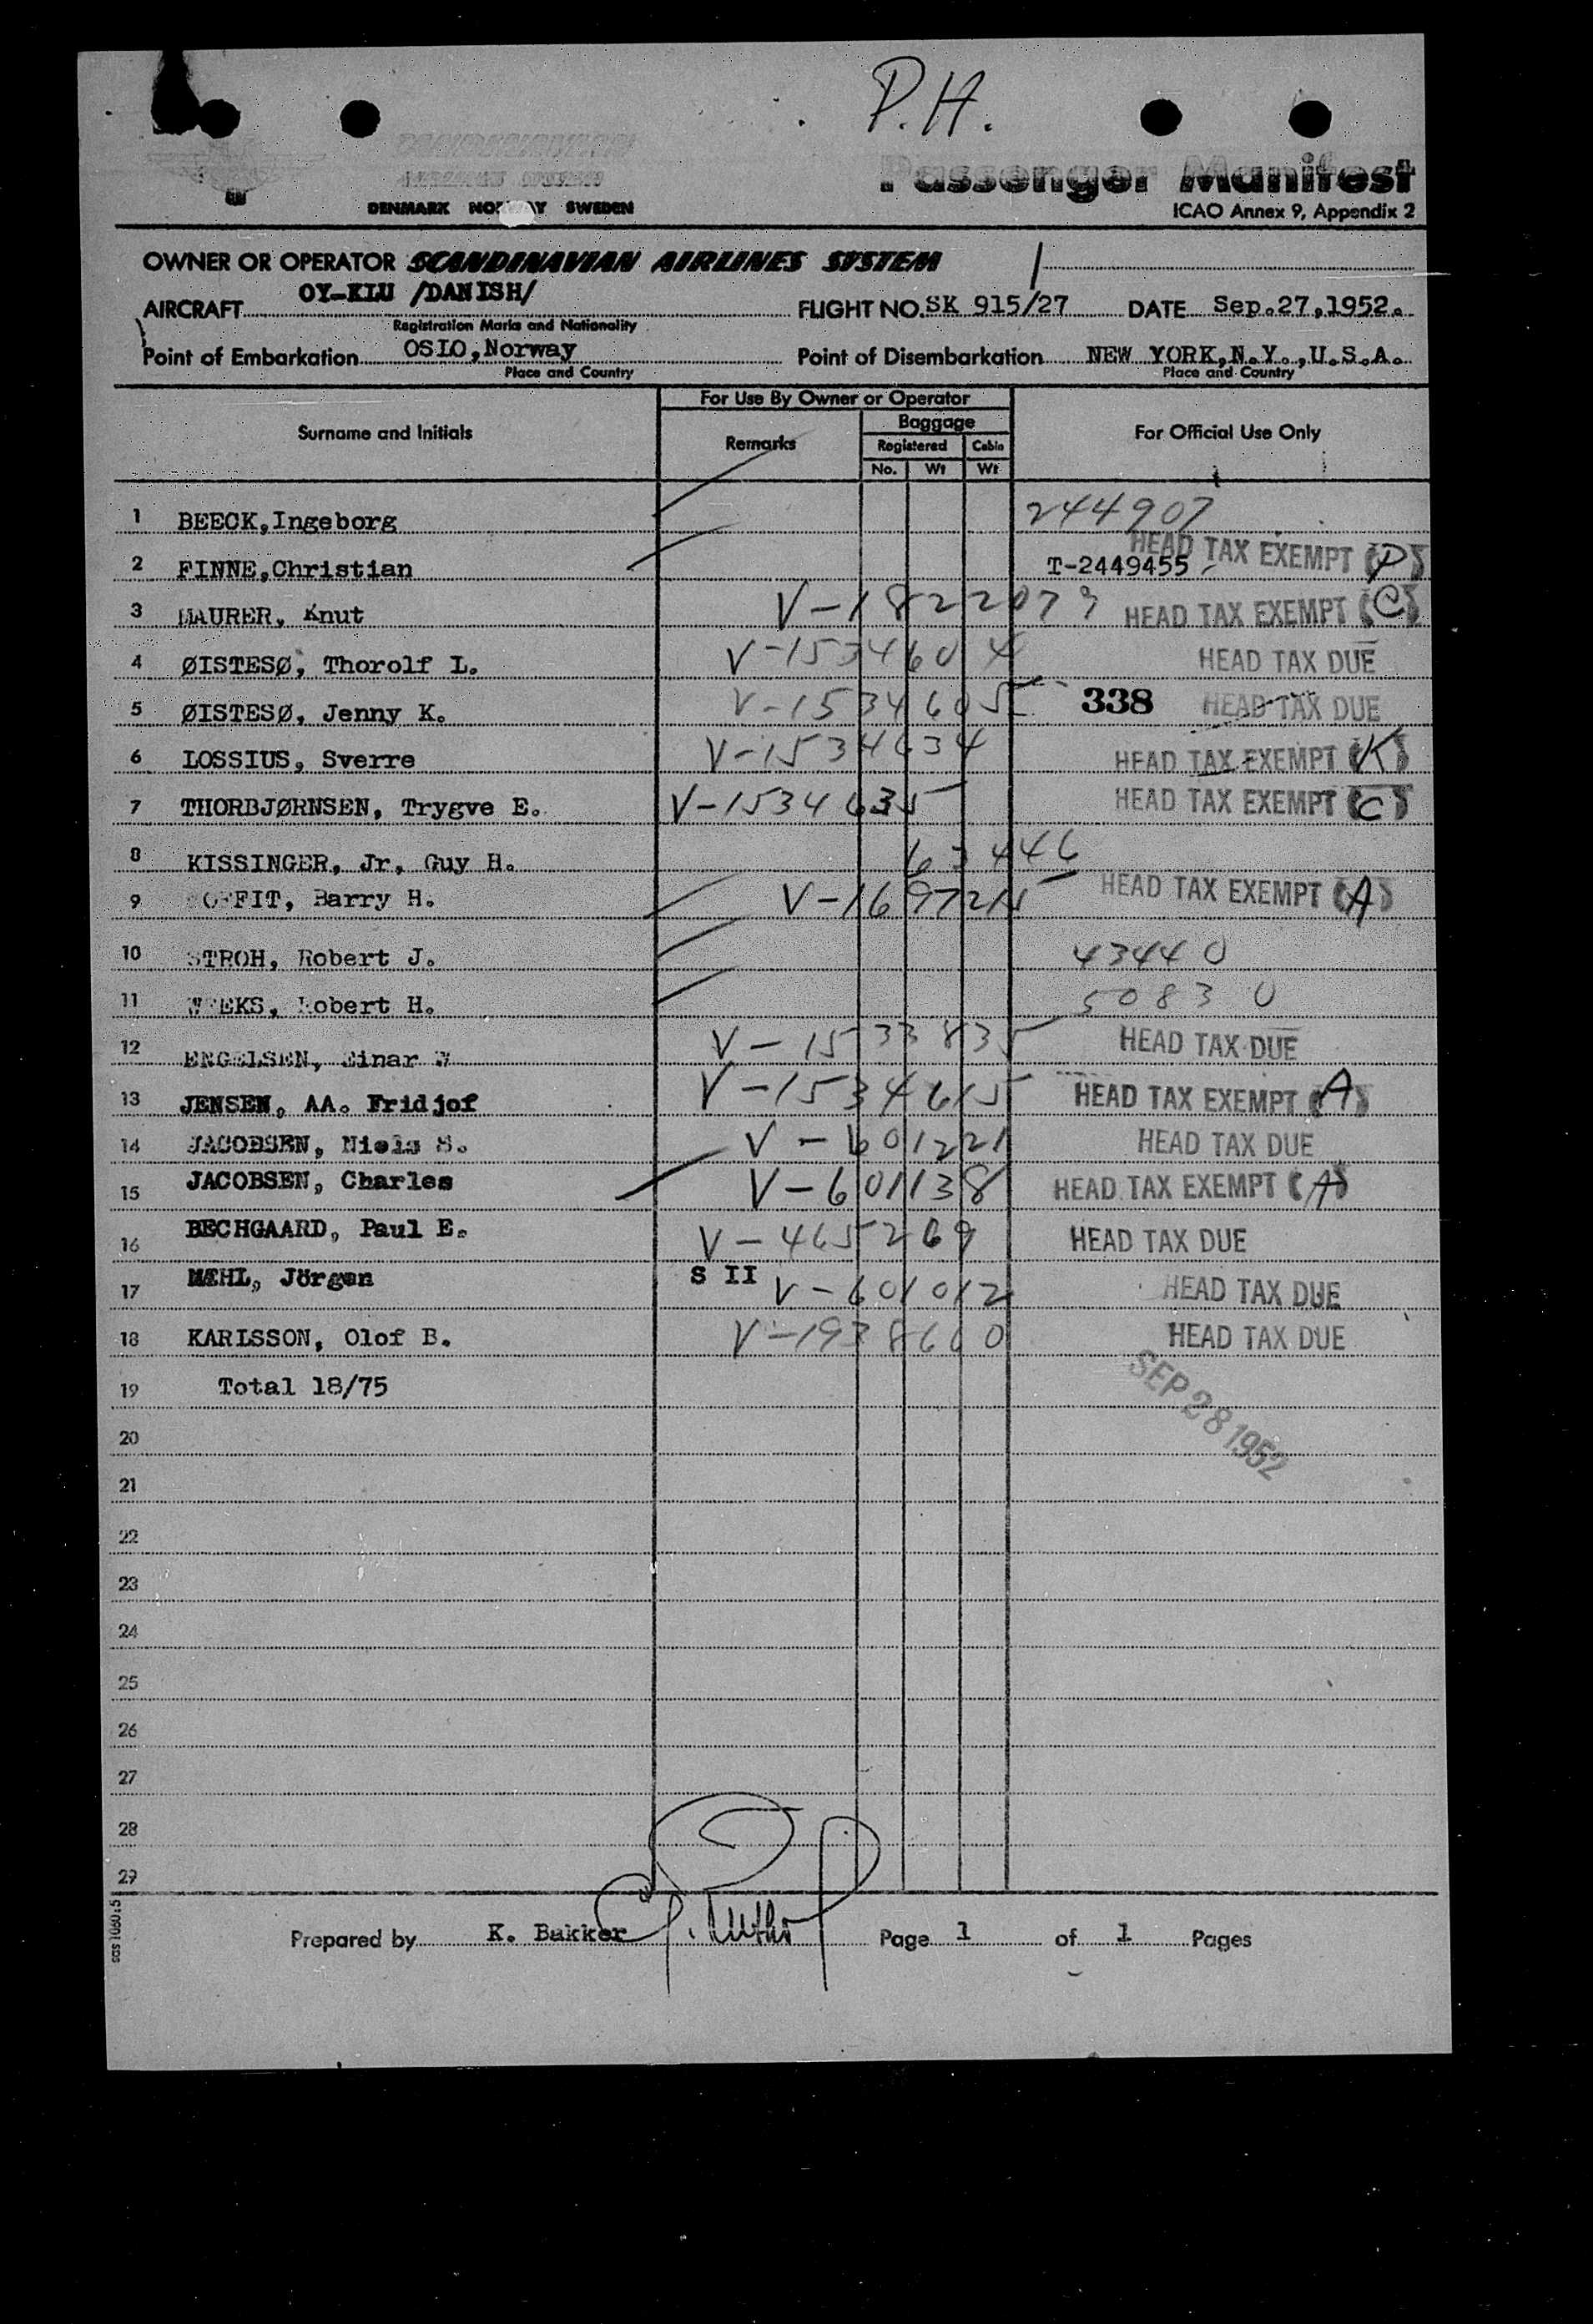 P.H.
SCANDINAVIAN
AIRLINES SYSTEM
DENMARK NORWAY SWEDEN
Passenger Manifest
ICAO Annex 9, Appendix 2
OWNER OR OPERATOR SCANDINAVIAN AIRLINES SYSTEM
AIRCRAFT OY-KLU /DANISH/ FLIGHT NO. SK 915/27 DATE Sep.27,1952.
Registration Marks and Nationality
Point of Embarkation OSLO,Norway Point of Disembarkation NEW YORK,N.Y.,U.S.A.
Place and Country Place and Country
For Use By Owner or Operator
Surname and Initials Remarks Baggage For Official Use Only
Registered Cabin
No. Wt Wt
1 BEECK,Ingeborg 244907
2 FINNE,Christian T-2449455 HEAD TAX EXEMPT (P)
3 MAURER, Knut V-1822079 HEAD TAX EXEMPT (C)
4 ØISTESØ, Thorolf L. V-1534604 HEAD TAX DUE
5 ØISTESØ, Jenny K. V-1534605 338 HEAD TAX DUE
6 LOSSIUS, Sverre V-1534634 HEAD TAX EXEMPT (K)
7 THORBJØRNSEN, Trygve E. V-1534635 HEAD TAX EXEMPT (C)
8 KISSINGER, Jr, Guy H. 63446
9 Barry H. V-1697215 HEAD TAX EXEMPT (A)
10 STROH, Robert J. 43440
11 WEEKS, Robert H. 50830
12 ENGELSEN, Einar W V-1533835 HEAD TAX DUE
13 JENSEN, AA. Fridjof V-1534615 HEAD TAX EXEMPT (A)
14 JACOBSEN, Niels S. V-601221 HEAD TAX DUE
15 JACOBSEN, Charles V-601138 HEAD TAX EXEMPT (A)
16 BECHGAARD, Paul E. V-465269 HEAD TAX DUE
17 MÆHL, Jörgen S II V-601012 HEAD TAX DUE
18 KARLSSON, Olof B. V-1938600 HEAD TAX DUE
19 Total 18/75
SEP 28 1952
20
21
22
23
24
25
26
27
28
29
Prepared by K. Bakker Page 1 of 1 Pages